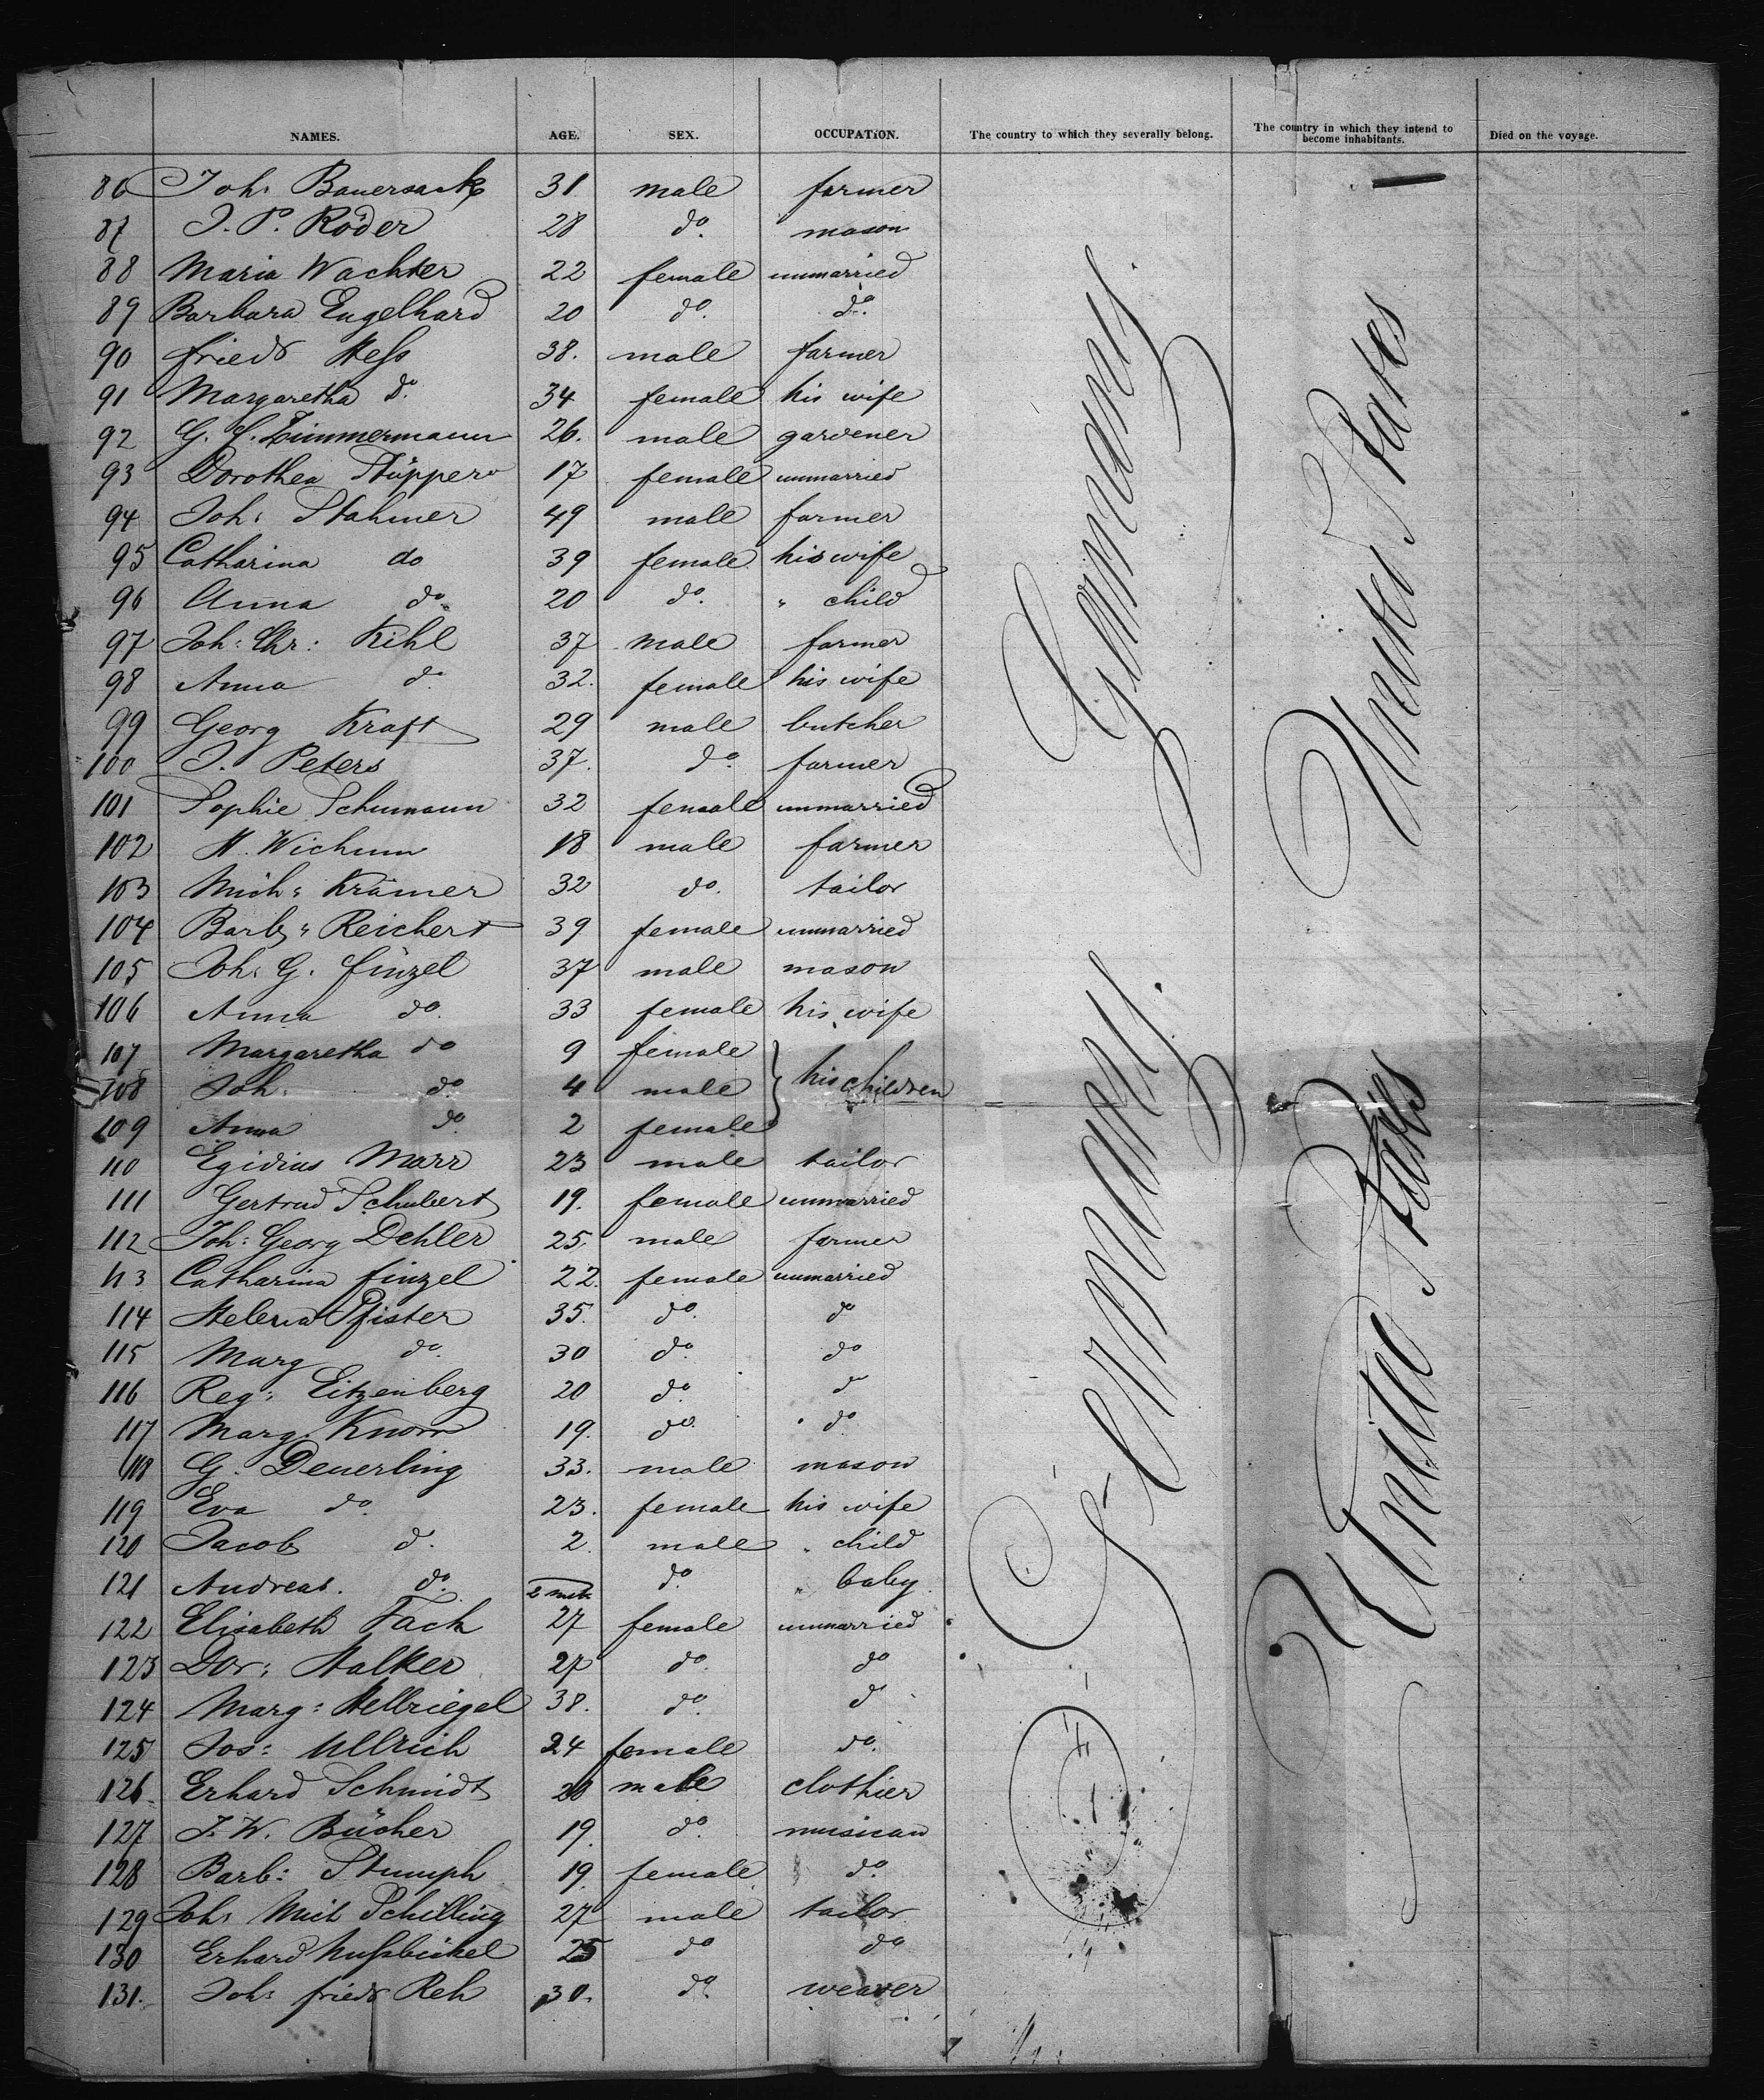 NAMES. AGE. SEX. OCCUPATION. The country to which they severally belong. The country in which they intend to become inhabitants. Died on the voyage.
86 Joh: Bauersack 31. male farmer
87 J. P. Röder 28 do. mason
88 Maria Wachter 22 female unmarried
89 Barbara Engelhard 20 do. do.
90 Friedr Hess 38. male farmer
91 Margaretha do. 34 female his wife
92 G. J. Zimmermann 26. male gardener
93 Dorothea 17 female unmarried
94 Joh: Stahmer 49 male farmer
95 Catharina do 39 female his wife
96 Anna do. 20 do. " child
97 Joh: Chr: Kihl 37 male farmer
98 Anna d. 32. female his wife
99 Georg Kraft 29 male butcher
100 J. Peters 37. do. farmer
101 Sophie Schumann 32 female unmarried
102 H. 18 male farmer
103 Mich: Krämer 32 do. tailor
104 Barb: Reichert 39 female unmarried
105 Joh: G. Finzel 37 male mason
106 Anna do. 33 female his wife
107 Margaretha do 9 female
108 Joh: do. 4 male } his children
109 Anna do 2 female
110 Egidius Marr 23 male tailor
111 Gertrud Schubert 19. female unmarried
112 Joh: Georg Dehler 25. male farmer
113 Catharina Finzel 22. female unmarried
114 Helena Pfister 35. do. do
115 Marg do. 30 do. do
116 Reg: Eitzenberg 20 do. do
117 Marg. Knorr 19. do. do
118 G. Deuerling 33. male mason
119 Eva do. 23. female his wife
120 Jacob d. 2. male " child
121 Andreas. do. 2 mth do. " baby
122 Elisabeth Fach 27 female unmarried
123 Dor: Halker 27 do. do
124 Marg: Hellriegel 38. do. d
125 Jos: Ullrich 24 female do.
126. Erhard Schmidt 20 male clothier
127 J. W. Bücher 19. do. musican
128 Barb: Stumph 19. female do.
129 Joh: Schilling 27 male tailor
130 Erhard 25 do do
131. Joh: Friedr Reh 30. do. weaver
Germany.
Germany.
United States
United States